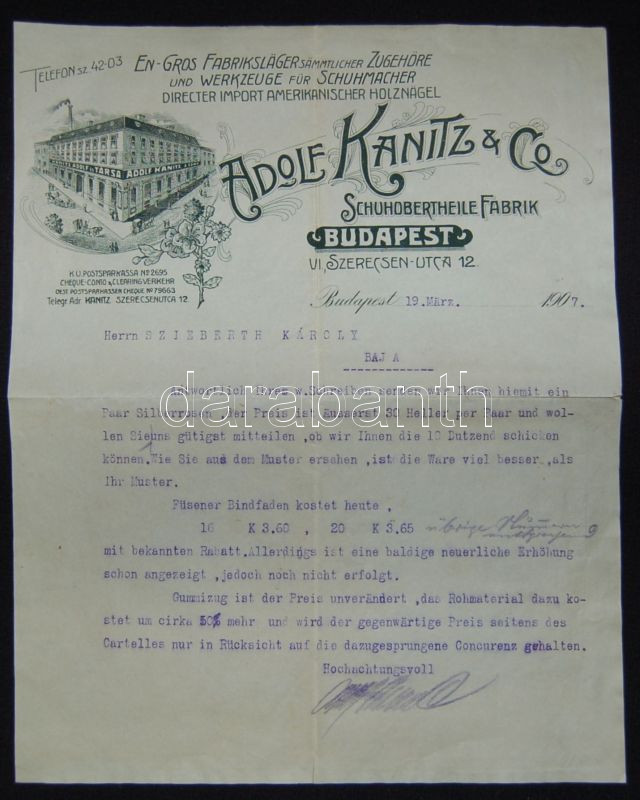 TELEFON SZ. 42-03
EN-GROS FABRIKSLÄGER SÄMMTLICHER ZUGEHÖRE
UND WERKZEUGE FÜR SCHUHMACHER
DIRECTER IMPORT AMERIKANISCHER HOLZNÄGEL
ADOLF KANITZ & CO
TÁRSA ADOLF KANITZ
SCHUHOBERTHEILE FABRIK
BUDAPEST
VI., SZERECSEN-UTCA 12.
K. U. POSTSPARKASSA No 2695
CHEQUE-CONTO & CLEARING VERKEHR
OEST. POSTSPARKASSEN CHEQUE No 79663
Telegr. Adr. KANITZ SZERECSENUTCA 12.
Budapest 19. März. 1907.
Herrn SZIEBERTH KÁROLY
BAJA
Antwortlich Ihres w. Schreiben senden wir Ihnen hiemit ein
Paar Silberrosen. Der Preis ist äusserst 30 Heller per Paar und wol-
len Sie uns gütigst mitteilen, ob wir Ihnen die 10 Dutzend schicken
können. Wie Sie aus dem Muster ersehen, ist die Ware viel besser, als
Ihr Muster.
Füsener Bindfaden kostet heute,
16 K 3.60, 20 K 3.65 übrige Nummern
mit bekannten Rabatt. Allerdings ist eine baldige neuerliche Erhöhung
schon angezeigt, jedoch noch nicht erfolgt.
Gummizug ist der Preis unverändert, das Rohmaterial dazu ko-
stet um cirka 50% mehr und wird der gegenwärtige Preis seitens des
Cartelles nur in Rücksicht auf die dazugesprungene Concurenz gehalten.
Hochachtungsvoll
darabanth